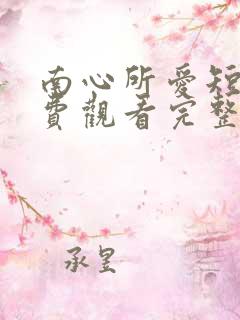 南心所愛短
費觀看完整
承星